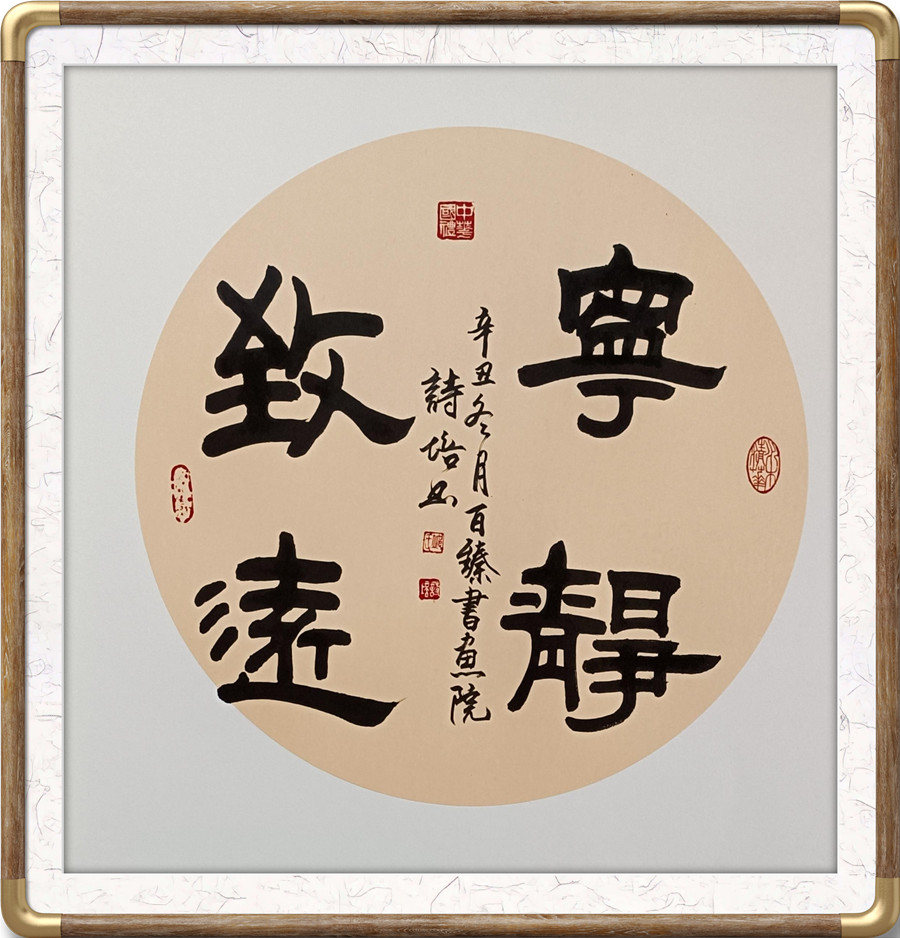 寧靜
致遠
辛丑冬月百臻書畫院
詩培書
中華國禮